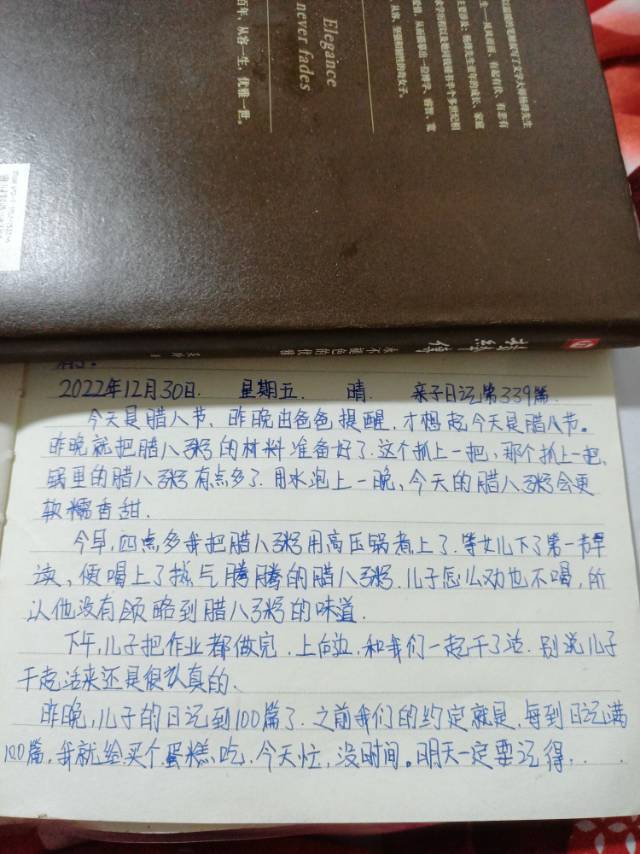 Elegance
never fades
百年，从容一生，优雅一世。
杨绛传
永不褪色的优雅
2022年12月30日. 星期五 晴 亲子日记第339篇
今天是腊八节，昨晚由爸爸提醒，才想起今天是腊八节。
昨晚就把腊八粥的材料准备好了.这个抓上一把，那个抓上一把，
锅里的腊八粥有点多了.用水泡上一晚，今天的腊八粥会更
软糯香甜.
今早，四点多我把腊八粥用高压锅煮上了.等女儿下了第一节早
读，便喝上了热气腾腾的腊八粥.儿子怎么劝也不喝，所
以他没有领略到腊八粥的味道.
下午，儿子把作业都做完.上向边，和我们一起干了活.别说儿子
干起活来还是很认真的、
昨晚，儿子的日记到100篇了.之前我们的约定就是，每到日记满
100篇，我就给买个蛋糕吃.今天忙，没时间。明天一定要记得..